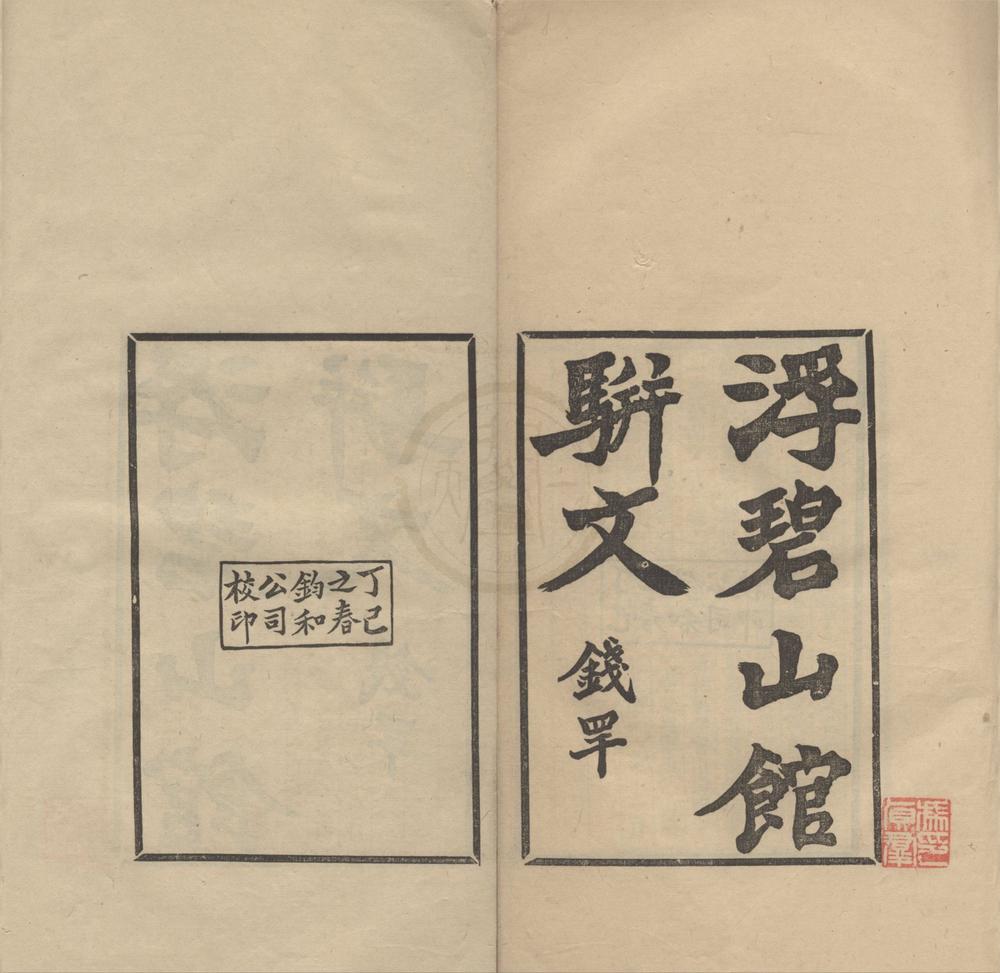 浮碧山館
駢文
錢罕
丁巳
之春
鈞和
公司
校印